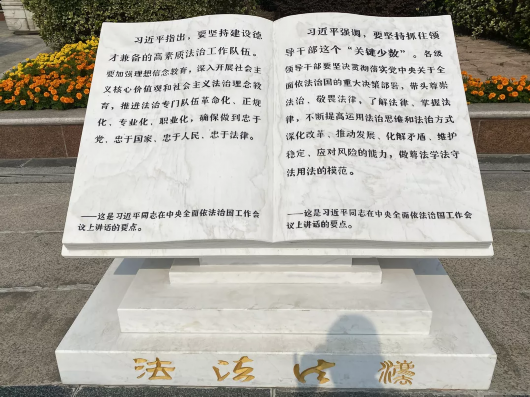 习近平指出，要坚持建设德
才兼备的高素质法治工作队伍。
要加强理想信念教育，深入开展社会主
义核心价值观和社会主义法治理念教
育，推进法治专门队伍革命化、正规
化、专业化、职业化，确保做到忠于
党、忠于国家、忠于人民、忠于法律。
——这是习近平同志在中央全面依法治国工作会
议上讲话的要点。
习近平强调，要坚持抓住领
导干部这个“关键少数”。各级
领导干部要坚决贯彻落实党中央关于全
面依法治国的重大决策部署，带头尊崇
法治、敬畏法律，了解法律、掌握法
律，不断提高运用法治思维和法治方式
深化改革、推动发展、化解矛盾、维护
稳定、应对风险的能力，做尊法学法守
法用法的模范。
——这是习近平同志在中央全面依法治国工作会
议上讲话的要点。
法 法